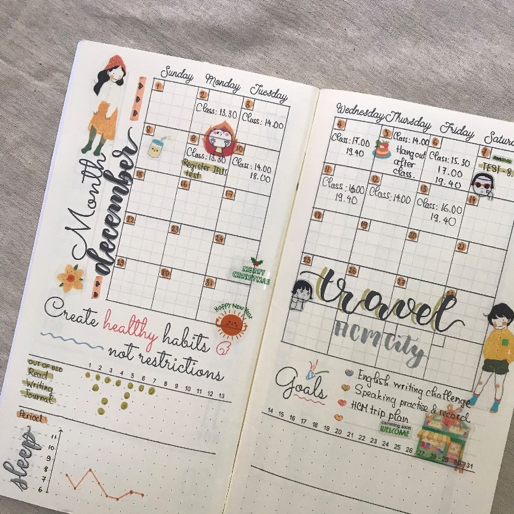 Sunday Monday Tuesday
Class: 15.30
Class: 14.00
Class: 15.30
Register IELTS
test
Class: 14.00
18.00
Month
december
MERRY
CHRISTMAS
HAPPY NEW YEAR
Create healthy habits
not restrictions
OUT OF BED
Read
Writing
Journal
Period
1 2 3 4 5 6 7 8 9 10 11 12 13
sleep
11
10
9
8
7
6
Wednesday Thursday Friday
Class: 17.00
19.40
Class: 14.00
Hang out
after
class
Class: 15.30
17.00
19.40
TEST
Class: 16.00
19.40
Class: 14.00
Class: 16.00
19.40
travel
HCM City
Goals
English writing challenge
Speaking practice & record
HCM trip plan
WELCOME
14 15 16 17 18 19 20 21 22 23 24 25 26 27 28 29 30 31